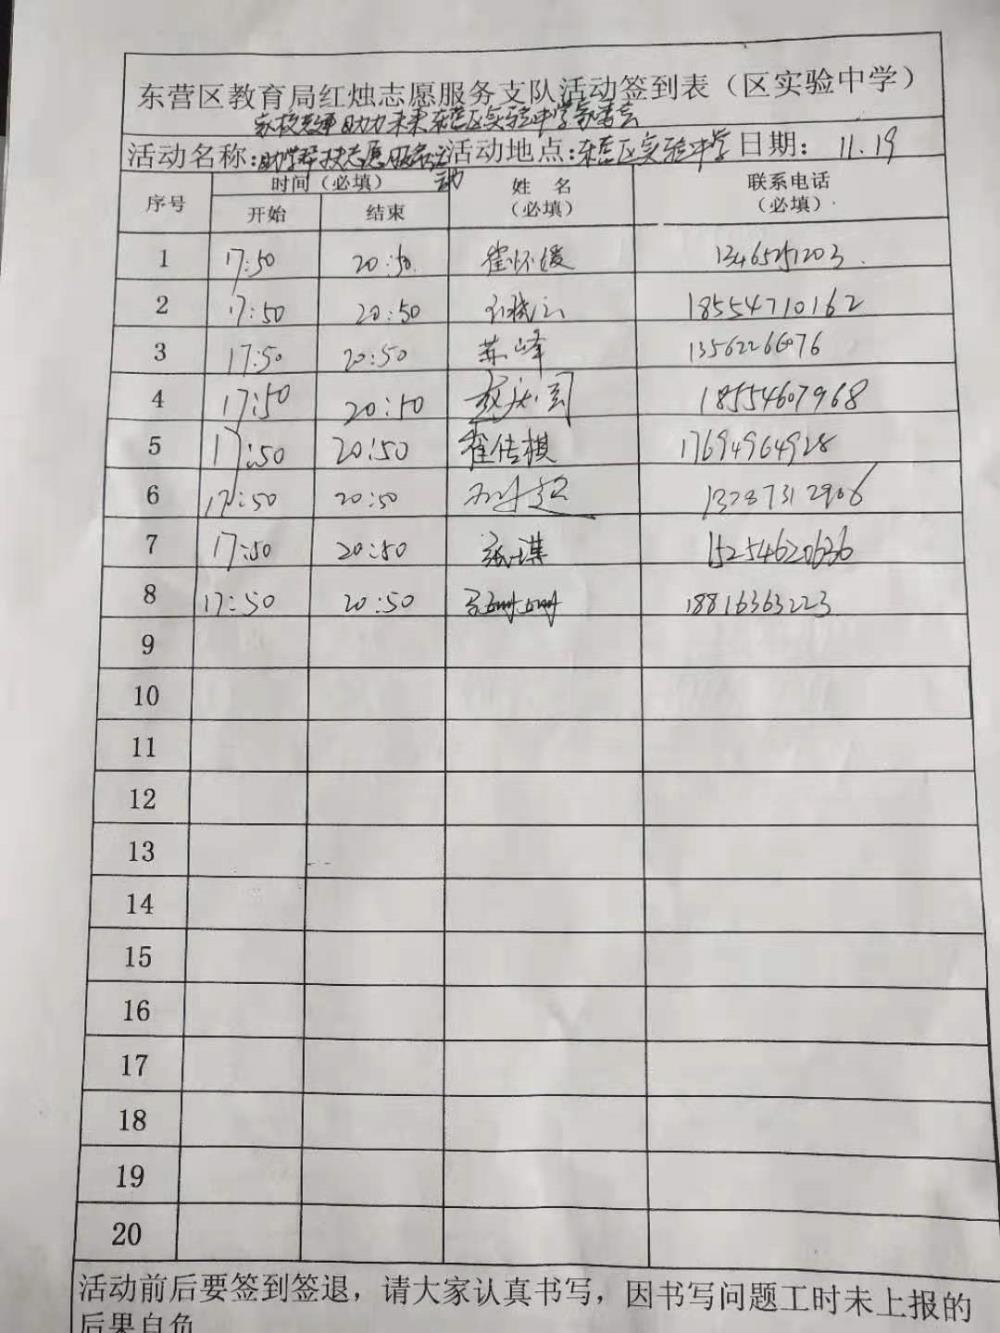 东营区教育局红烛志愿服务支队活动签到表（区实验中学）
家校志愿 助力未来 东营区实验中学家委会
活动名称：助学帮扶志愿服务活动 活动地点：东营区实验中学 日期： 11.19
序号 时间（必填） 姓 名（必填） 联系电话（必填）
开始 结束
1 17:50 20:50 崔怀媛
2 17:50 20:50 18554710162
3 17:50 20:50 苏峰
4 17:50 20:50 18554607968
5 17:50 20:50 崔传棋 17694964928
6 17:50 20:50 13287312906
7 17:50 20:50 张琪 15254620636
8 17:50 20:50 18816363223
9
10
11
12
13
14
15
16
17
18
19
20
活动前后要签到签退，请大家认真书写，因书写问题工时未上报的
后果自负